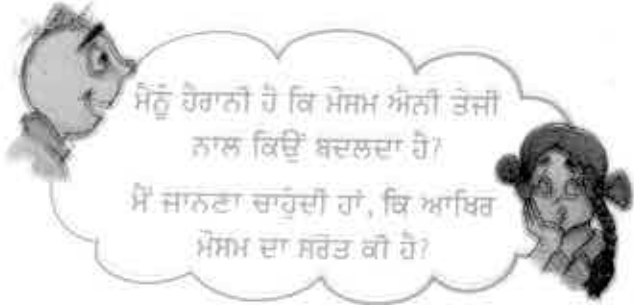 ਮੈਨੂੰ ਹੈਰਾਨੀ ਹੈ ਕਿ ਮੌਸਮ ਐਨੀ ਤੇਜੀ
ਨਾਲ ਕਿਉਂ ਬਦਲਦਾ ਹੈ?
ਮੈਂ ਜਾਨਣਾ ਚਾਹੁੰਦੀ ਹਾਂ, ਕਿ ਆਖਿਰ
ਮੌਸਮ ਦਾ ਸਰੋਤ ਕੀ ਹੈ?